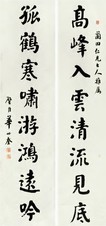 高峰入雲清流見底
孤鶴寒嘯游鴻遠吟